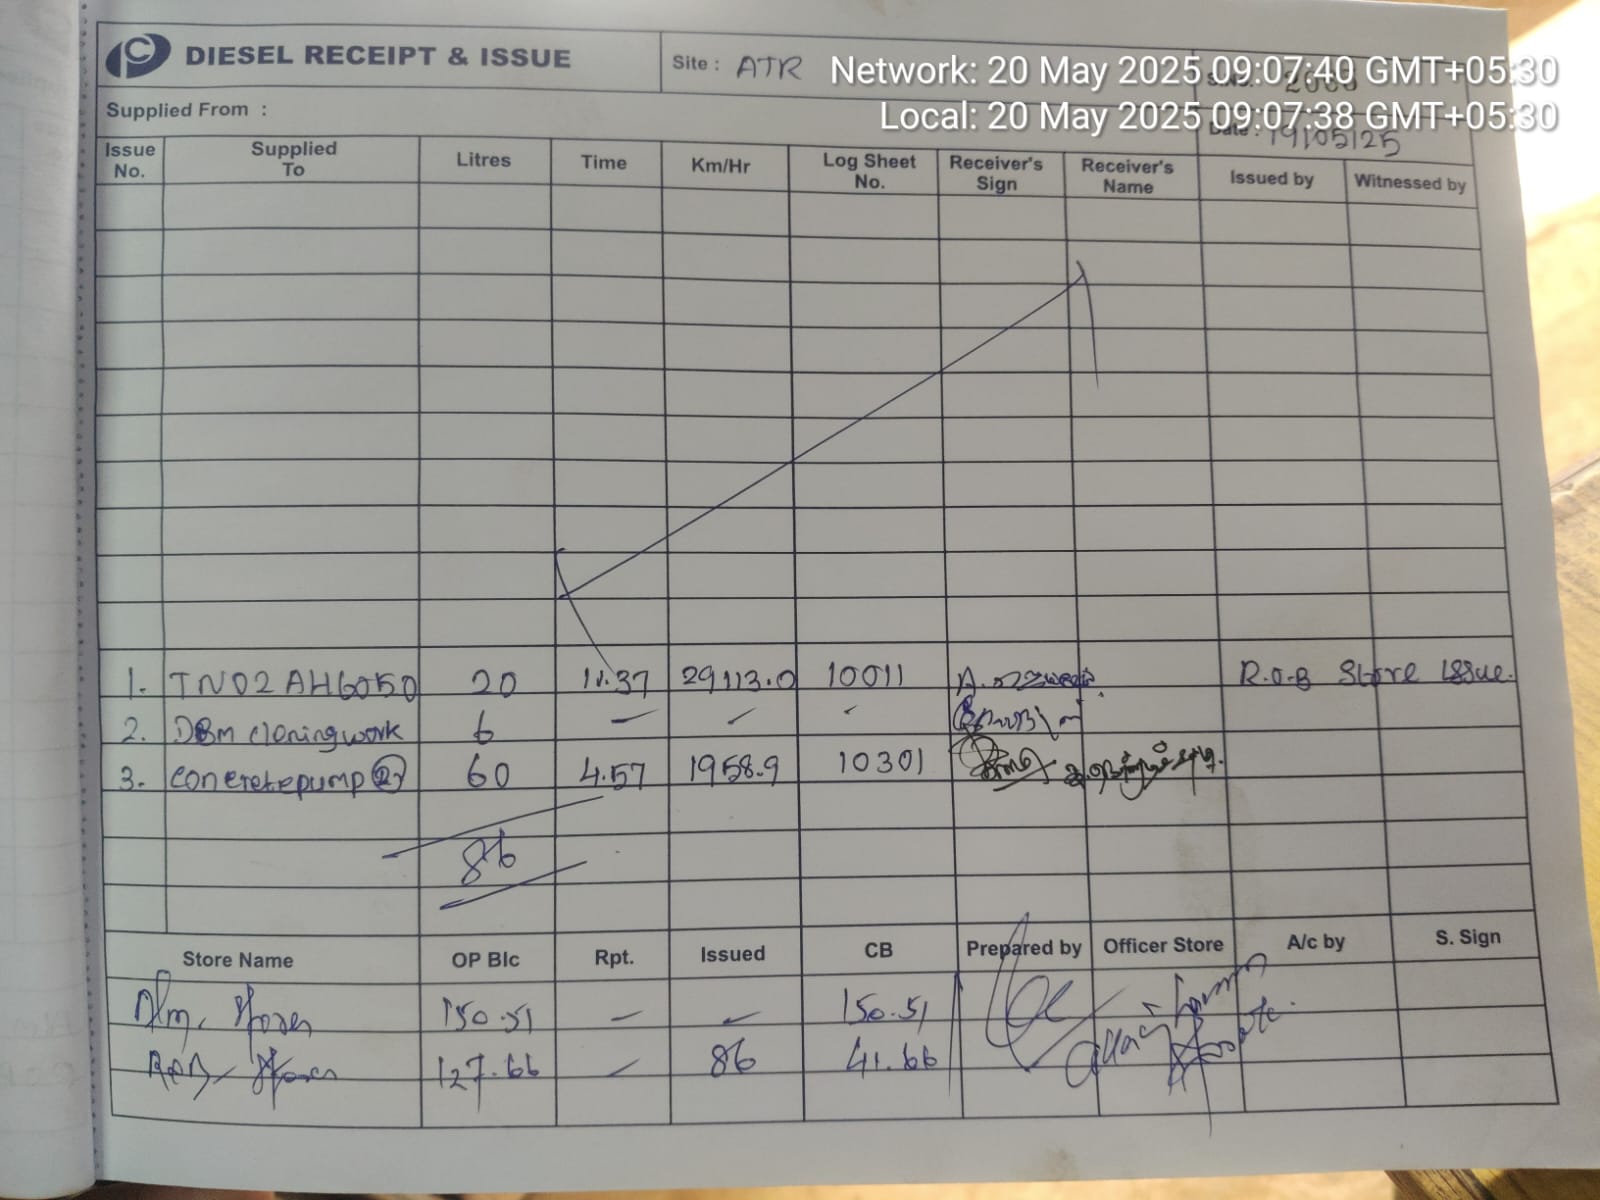 DIESEL RECEIPT & ISSUE
Site : ATR
Network: 20 May 2025 09:07:40 GMT+05:30
Local: 20 May 2025 09:07:38 GMT+05:30
Supplied From :
Date : 19/05/25
Issue No. Supplied To Litres Time Km/Hr Log Sheet No. Receiver's Sign Receiver's Name Issued by Witnessed by
1. TN02AH6050 20 11.37 29113.0 10011 R.O.B Store Issue.
2. DBM cloningwork 6 – – –
3. concretepump (2) 60 4.57 1958.9 10301
86
Store Name OP Blc Rpt. Issued CB Prepared by Officer Store A/c by S. Sign
150.51 – – 150.51
127.66 – 86 41.66